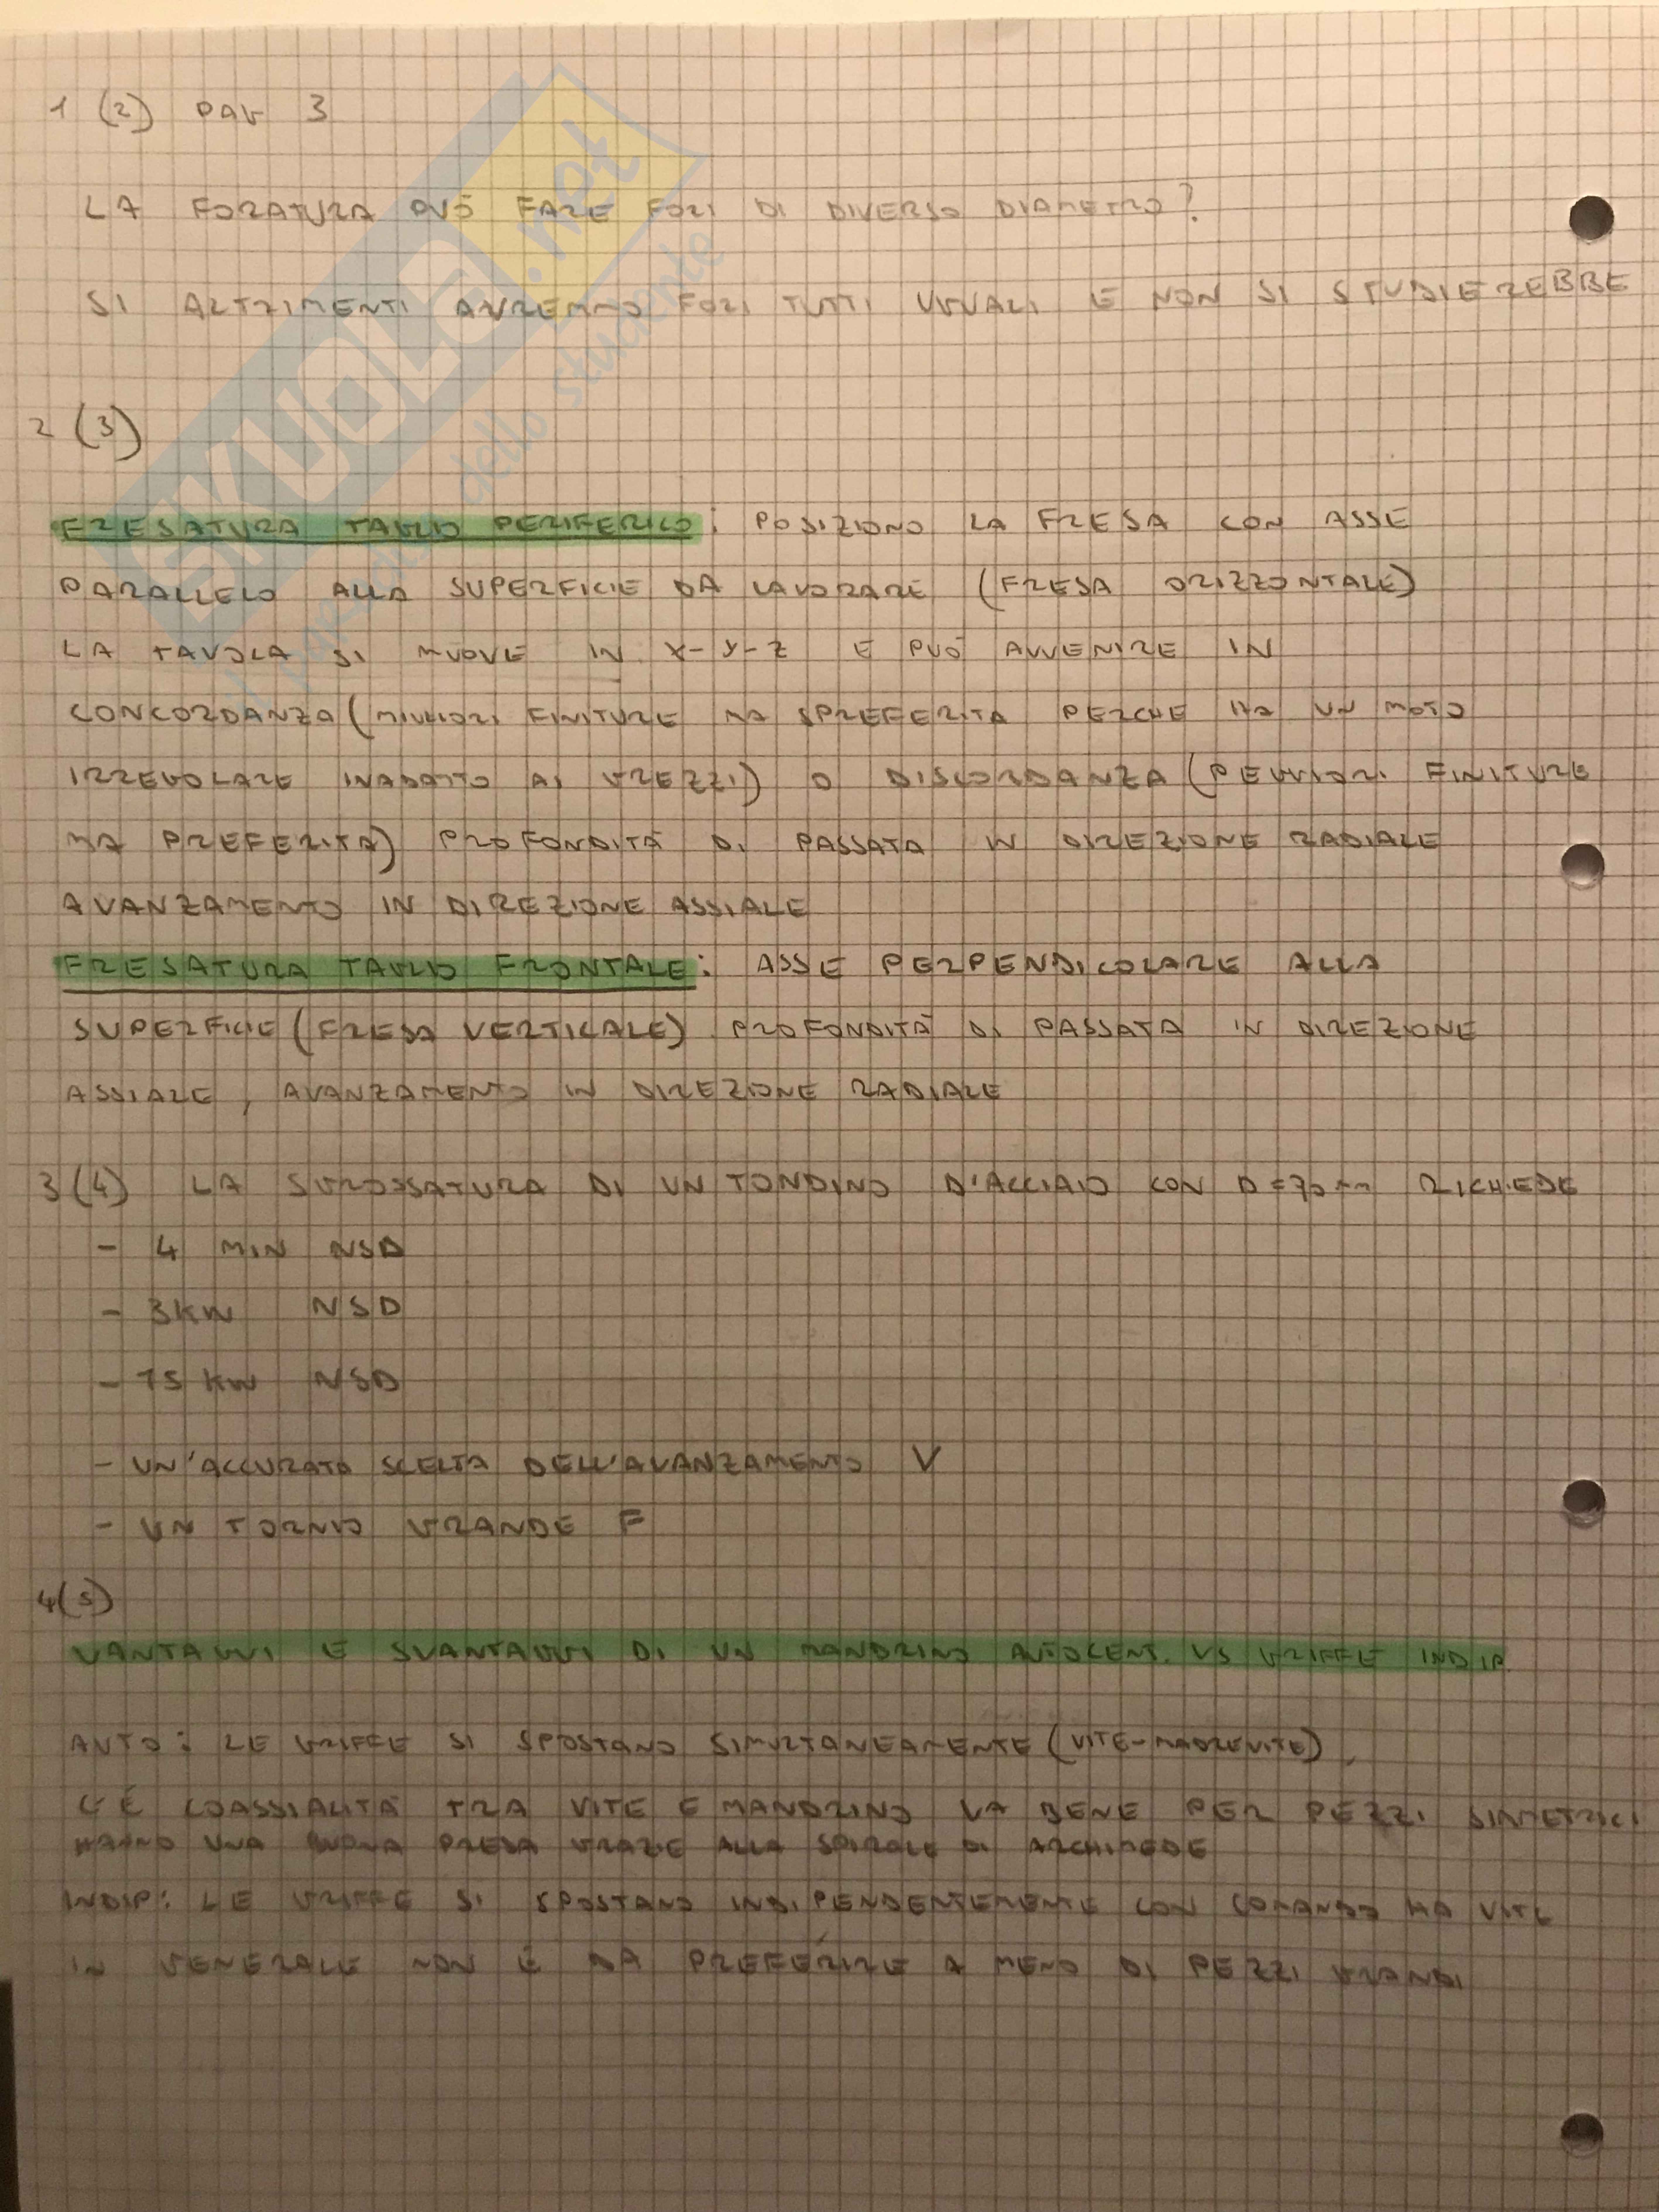 1 (2) PAG 3
LA FORATURA PUÒ FARE FORI DI DIVERSO DIAMETRO?
SI ALTRIMENTI AVREMMO FORI TUTTI UGUALI E NON SI STUDIEREBBE
2 (3)
FRESATURA TAGLIO PERIFERICO: POSIZIONO LA FRESA CON ASSE
PARALLELO ALLA SUPERFICIE DA LAVORARE (FRESA ORIZZONTALE)
LA TAVOLA SI MUOVE IN X-Y-Z E PUÒ AVVENIRE IN
CONCORDANZA (MIGLIORI FINITURE MA SPREFERITA PERCHE HA UN MOTO
IRREGOLARE INADATTO AI GREZZI) O DISCORDANZA (PEGGIORI FINITURE
MA PREFERITA) PROFONDITÀ DI PASSATA IN DIREZIONE RADIALE
AVANZAMENTO IN DIREZIONE ASSIALE
FRESATURA TAGLIO FRONTALE: ASSE PERPENDICOLARE ALLA
SUPERFICIE (FRESA VERTICALE) PROFONDITÀ DI PASSATA IN DIREZIONE
ASSIALE, AVANZAMENTO IN DIREZIONE RADIALE
3 (4) LA SGROSSATURA DI UN TONDINO D'ACCIAIO CON D=70mm RICHIEDE
- 4 MIN NSD
- 3KW NSD
- 75 KW NSD
- UN'ACCURATA SCELTA DELL'AVANZAMENTO V
- UN TORNIO GRANDE F
4 (5)
VANTAGGI E SVANTAGGI DI UN MANDRINO AUTOCENT. VS GRIFFE INDIP.
AUTO: LE GRIFFE SI SPOSTANO SIMULTANEAMENTE (VITE-MADREVITE),
C'È COASSIALITÀ TRA VITE E MANDRINO VA BENE PER PEZZI SIMETRICI
HANNO UNA BUONA PRESA GRAZIE ALLA SPIRALE DI ARCHIMEDE
INDIP: LE GRIFFE SI SPOSTANO INDIPENDENTEMENTE CON COMANDO HA VITE
IN GENERALE NON È DA PREFERIRE A MENO DI PEZZI GRANDI
SKUOLA.net
dello studente